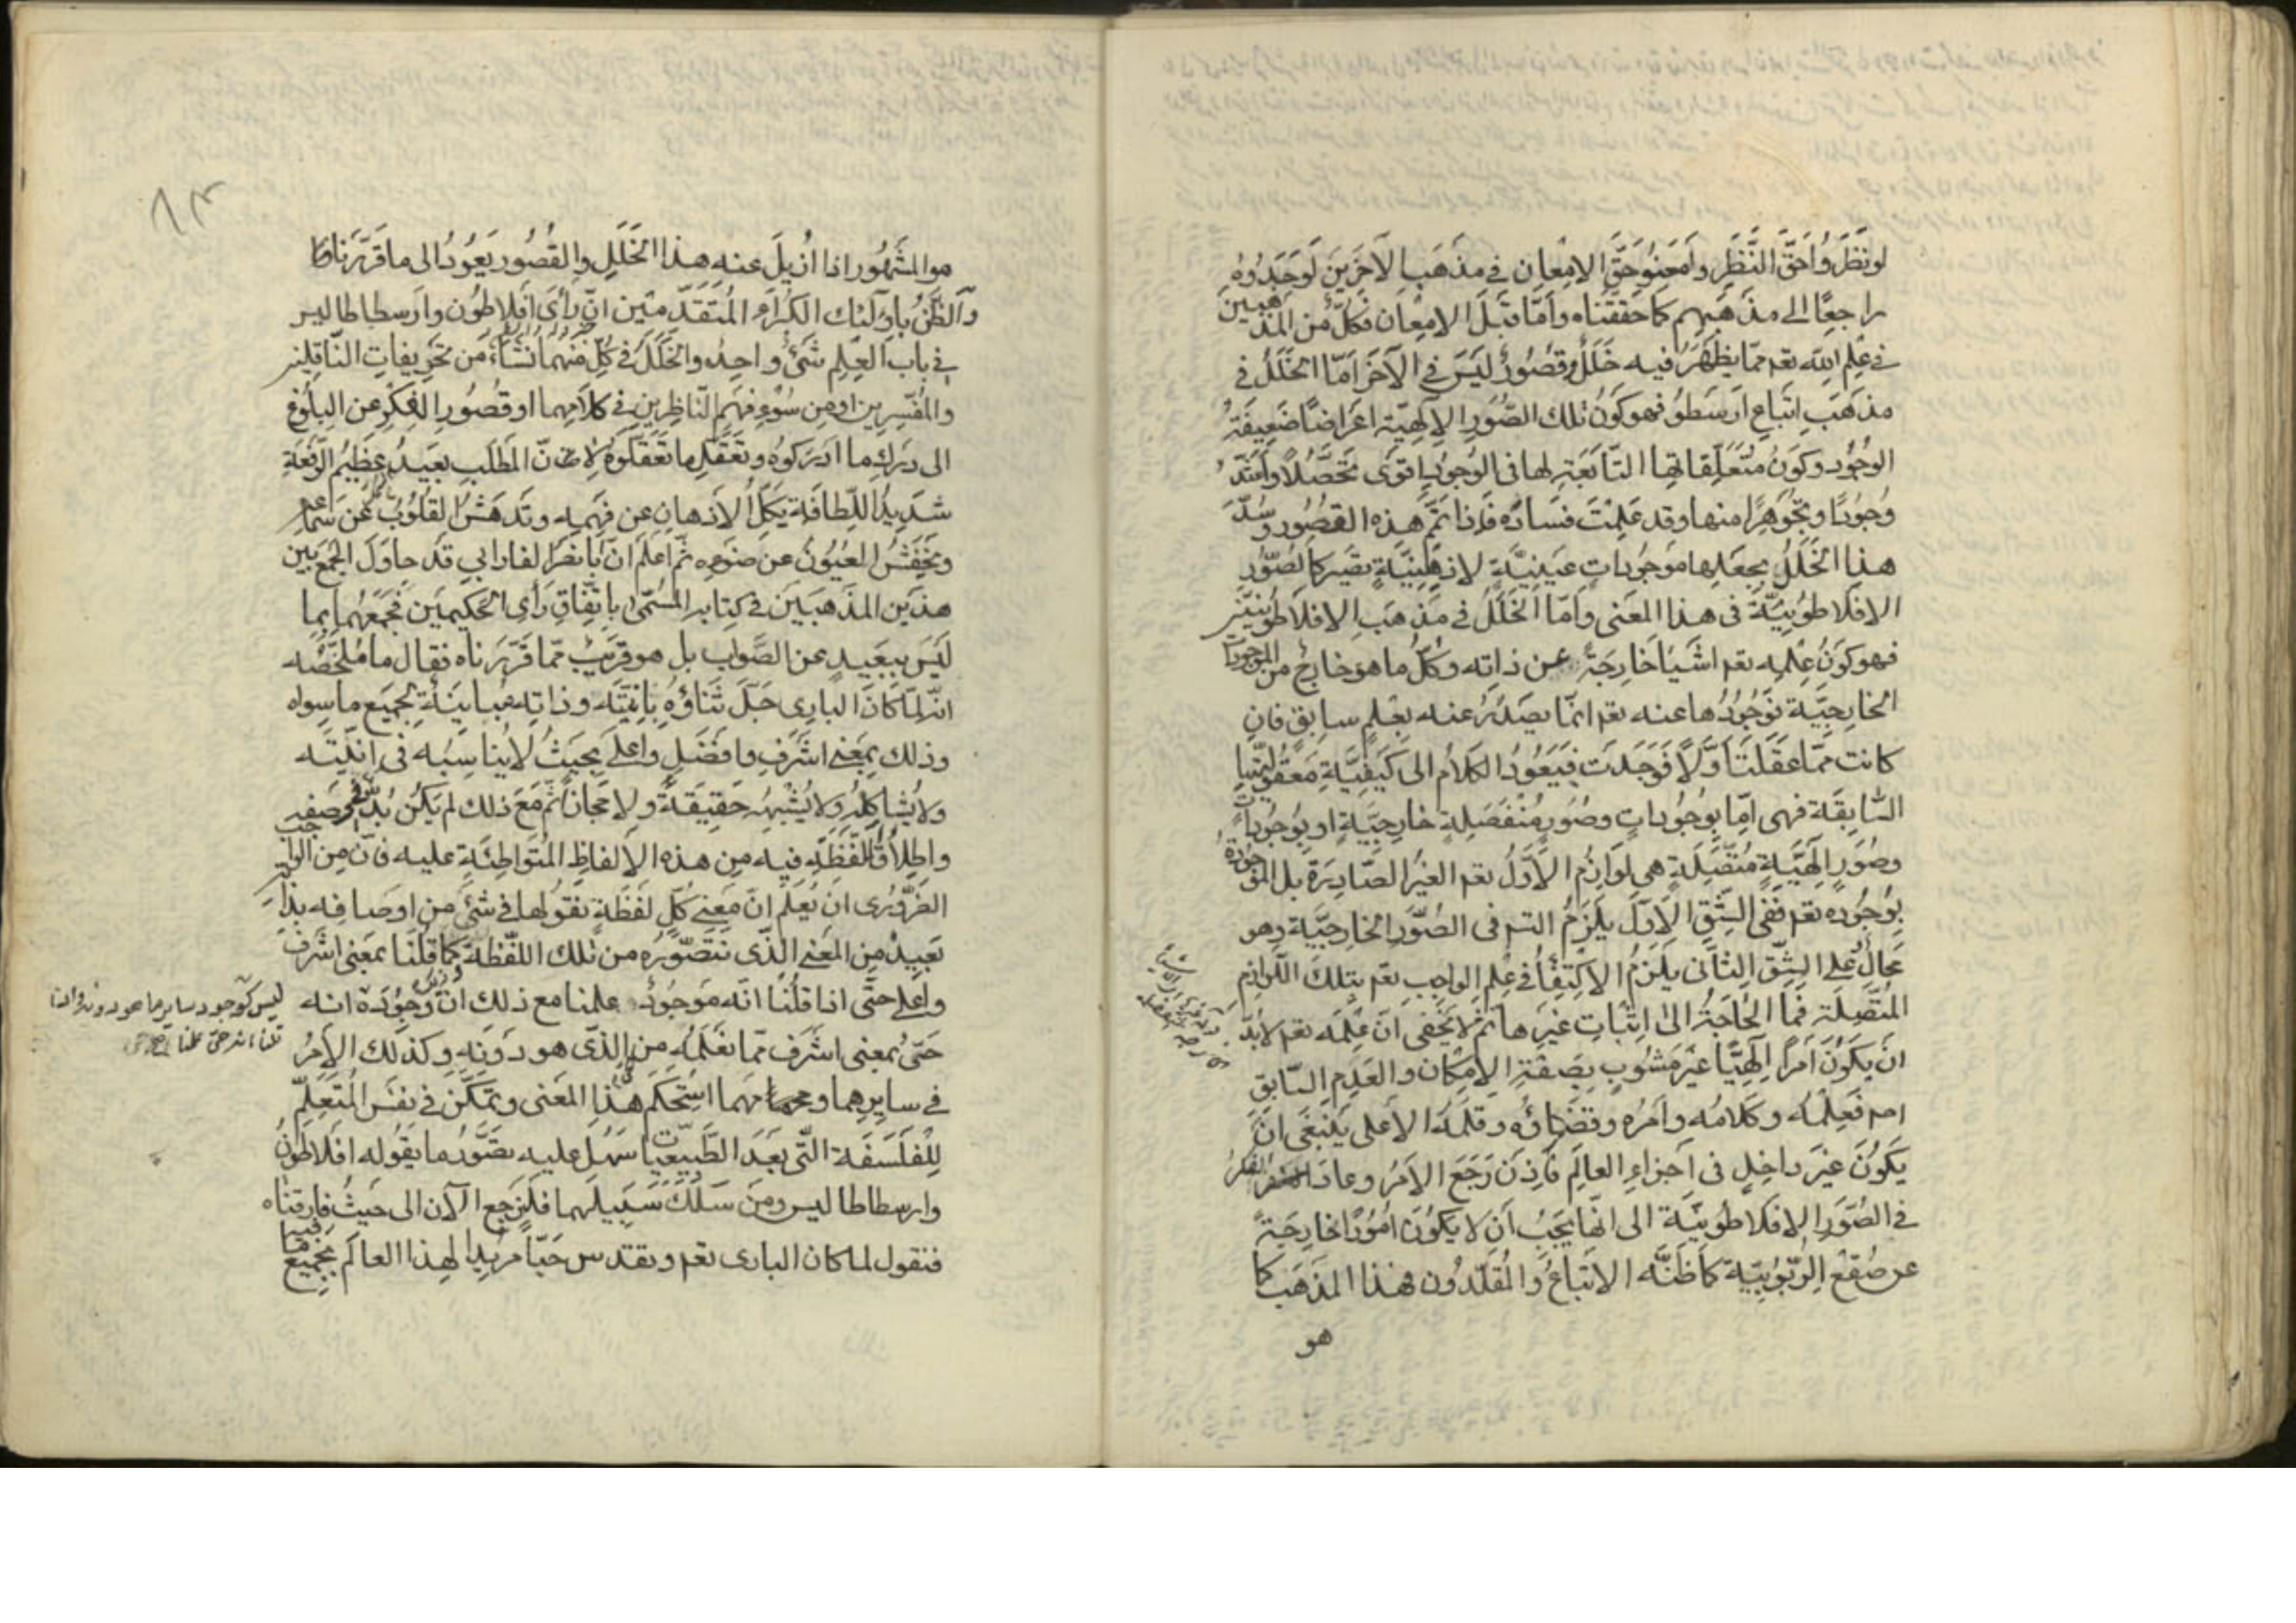 لو نظروا حق النظر وأمعنوا حق الامعان في مذهب الآخرين لوجدوه
راجعا الى مذهبهم كما حققناه وأما قبل الامعان فكل من المذهبين
في علم الله تعم مما يظهر فيه خلل وقصور ليس في الآخر اما الخلل في
مذهب اتباع ارسطو فهو كون تلك الصور الالهية اعراضا ضعيفة
الوجود وكون متعلقاتها التابعة لها في الوجود اقوى تحصلا وأشد
وجودا وتجوهرا منها وقد علمت فساده فاذا تم هذه القصور وسد
هذا الخلل بجعلها موجودات عينية لا ذهنية تصير كالصور
الافلاطونية في هذا المعنى وأما الخلل في مذهب الافلاطونيين
فهو كون علمه تعم اشياء خارجة عن ذاته وكل ما هو خارج من الموجودات
الخارجية فوجودها عنه تعم انما يصدر عنه بعلم سابق فان
كانت مما عقلت أولا فوجدت فيعود الكلام الى كيفية معقوليتها
السابقة فهي اما بوجودات وصور منفصلة خارجية او بوجودات
وصور الهية متصلة هي لوازم الأول تعم الغير الصادرة بل الموجودة
بوجوده تعم ففي الشق الأول يلزم التس في الصور الخارجية وهو
محال على الشق الثاني يلزم الاكتفاء في علم الواجب تعم بتلك اللوازم
المتصلة فما الحاجة الى اثبات غيرها ثم لا يخفى ان علمه تعم لابد
ان يكون أمرا الهيا غير مشوب بصفة الامكان والعدم السابق
فعلمه وكلامه وأمره وقضاؤه وقلمه الأعلى ينبغي ان
يكون غير داخل في أجزاء العالم فاذن رجع الأمر وعاد الفكر
في الصور الافلاطونية الى انها يجب أن لا يكون امورا خارجة
عن صقع الربوبية كما ظنه الاتباع والمقلدون لهذا المذهب كما
هو
هو المشهور اذا ازيل عنه هذا الخلل والقصور يعود الى ما قررناه
والظن باولئك الكرام المتقدمين ان رأى افلاطون وارسطاطاليس
في باب العلم شئ واحد والخلل في كل منهما نشاء من تحريفات الناقلين
والمفسرين او من سوء فهم الناظرين في كلامهما او قصور الفكر عن البلوغ
الى درك ما ادركوه وتعقل ما تعقلوه لان المطلب بعيد عظيم الرفعة
شديد اللطافة يكل الاذهان عن فهمه وتدهش القلوب عن سماعه
وتخفش العيون عن ضوءه ثم اعلم ان ابا نصر الفارابي قد حاول الجمع بين
هذين المذهبين في كتابه المسمى باتفاق رأى الحكيمين فجمعهما بما
ليس ببعيد عن الصواب بل هو قريب مما قررناه فقال ما ملخصه
انه لما كان البارى جل ثناؤه بانيته وذاته مباينة لجميع ما سواه
وذلك بمعنى اشرف وافضل واعلى بحيث لا يناسبه في انيته
ولا يشاكله ولا يشبهه حقيقة ولا مجازا ثم مع ذلك لم يكن بد من وصفه
واطلاق لفظة فيه من هذه الالفاظ المتواطئة عليه فان من الواجب
الضرورى ان يعلم ان معنى كل لفظة نقولها في شئ من اوصافه بذاته
بعيد من المعنى الذى نتصوره من تلك اللفظة كما قلنا بمعنى اشرف
واعلى حتى اذا قلنا انه موجود علمنا مع ذلك ان وجوده انه
ليس كوجود ساير ما هو دونه واذا
قلنا انه حى علمنا انه حى
حى بمعنى اشرف مما نعلمه من الذى هو دونه وكذلك الأمر
في سايرهما ومهما استحكم هذا المعنى وتمكن في نفس المتعلم
للفلسفة التى بعد الطبيعيات سهل عليه تصور ما يقوله افلاطون
وارسطاطاليس ومن سلك سبيلهما فلنرجع الآن الى حيث فارقناه
فنقول لما كان البارى تعم وتقدس حيا مريدا لهذا العالم بجميع ما فيه